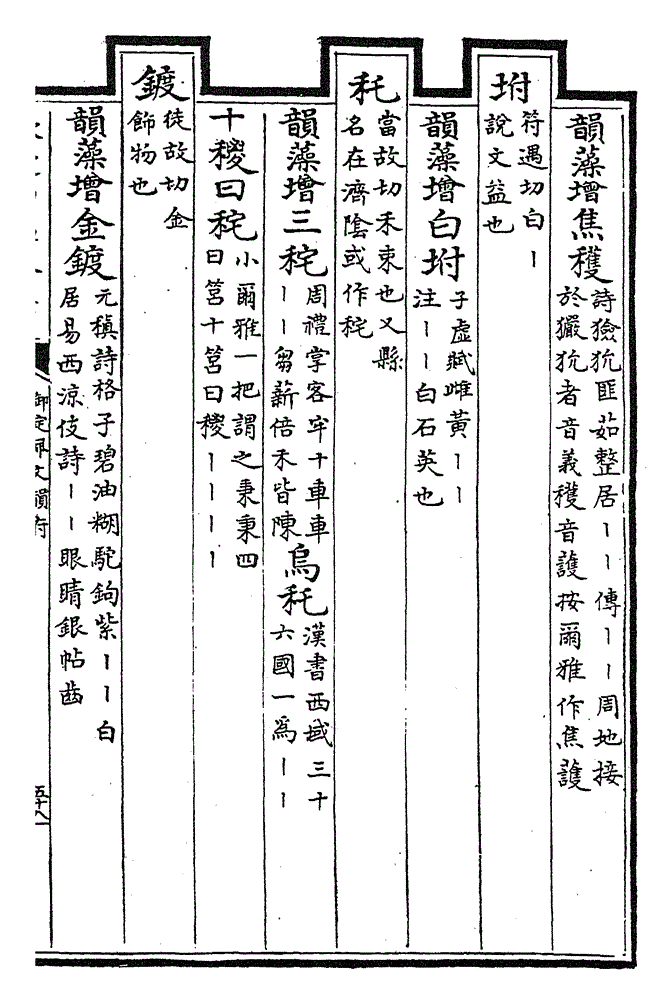 韻藻增焦穫詩獫狁匪茹整居丨丨傳丨丨周地接
於玁狁者音義穫音護按爾雅作焦護
坿符遇切白丨
說文益也
韻藻增白坿子虛賦雌黃丨丨
注丨丨白石英也
秅當故切禾束也又縣
名在濟陰或作秺
韻藻增三秺周禮掌客牢十車車
丨丨芻薪倍禾皆陳
烏秅漢書西域三十
六國一為丨丨
十稯曰秺小爾雅一把謂之秉秉四
曰筥十筥曰稯丨丨丨丨
鍍徒故切金
飾物也
韻藻增金鍍元稹詩格子碧油糊駝鉤紫丨丨白
居易西涼伎詩丨丨眼睛銀帖齒
御定佩文韻府
五十八